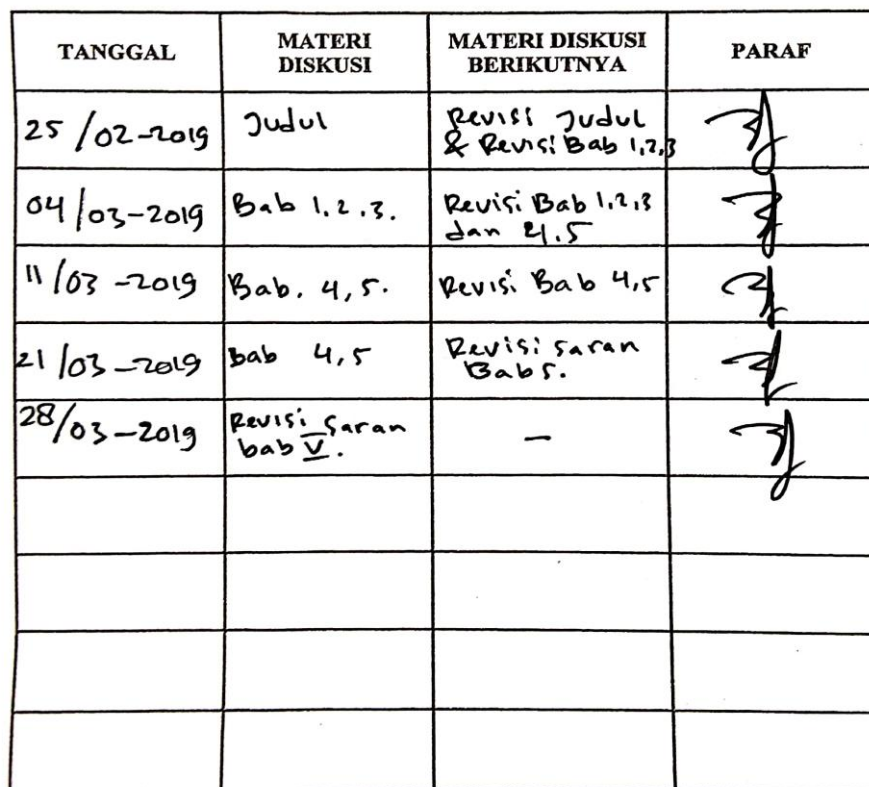 TANGGAL
MATERI DISKUSI
MATERI DISKUSI BERIKUTNYA
PARAF
25/02-2019
Judul
Revisi Judul
& Revisi Bab 1,2,3
04/03-2019
Bab 1.2.3.
Revisi Bab 1.2,3
dan 4.5
11/03-2019
Bab. 4,5.
Revisi Bab 4,5
21/03-2019
Bab 4,5
Revisi saran
Bab 5.
28/03-2019
Revisi saran
bab V.
-